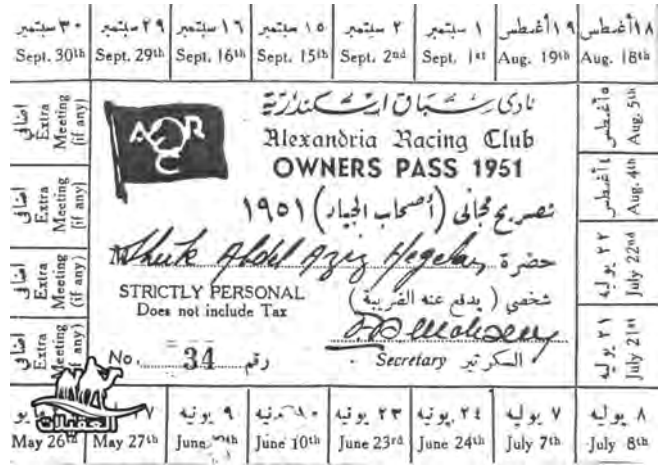 ٣٠ سبتمبر
Sept. 30th
٢٩ سبتمبر
Sept. 29th
١٦ سبتمبر
Sept. 16th
١٥ سبتمبر
Sept. 15th
٢ سبتمبر
Sept. 2nd
١ سبتمبر
Sept. 1st
١٩ أغسطس
Aug. 19th
١٨ أغسطس
Aug. 18th
اضافى
Extra
Meeting
(if any)
اضافى
Extra
Meeting
(if any)
اضافى
Extra
Meeting
(if any)
اضافى
Extra
Meeting
(if any)
A R
C
نادى سباق اسكندرية
Alexandria Racing Club
OWNERS PASS 1951
تصريح مجانى (أصحاب الجياد) ١٩٥١
M Sheik Abdel Aziz Hegelan حضرة
STRICTLY PERSONAL
شخصى ( يدفع عنه الضريبة )
Does not include Tax
No. 34 رقم
Secretary السكرتير
٥ أغسطس
Aug. 5th
٤ أغسطس
Aug. 4th
٢٢ يوليه
July 22nd
٢١ يوليه
July 21st
العقيلات
May 26th
٢٧
May 27th
٩ يونيه
June
يونيه
June 10th
٢٣ يونيه
June 23rd
٢٤ يونيه
June 24th
٧ يوليه
July 7th
٨ يوليه
July 8th